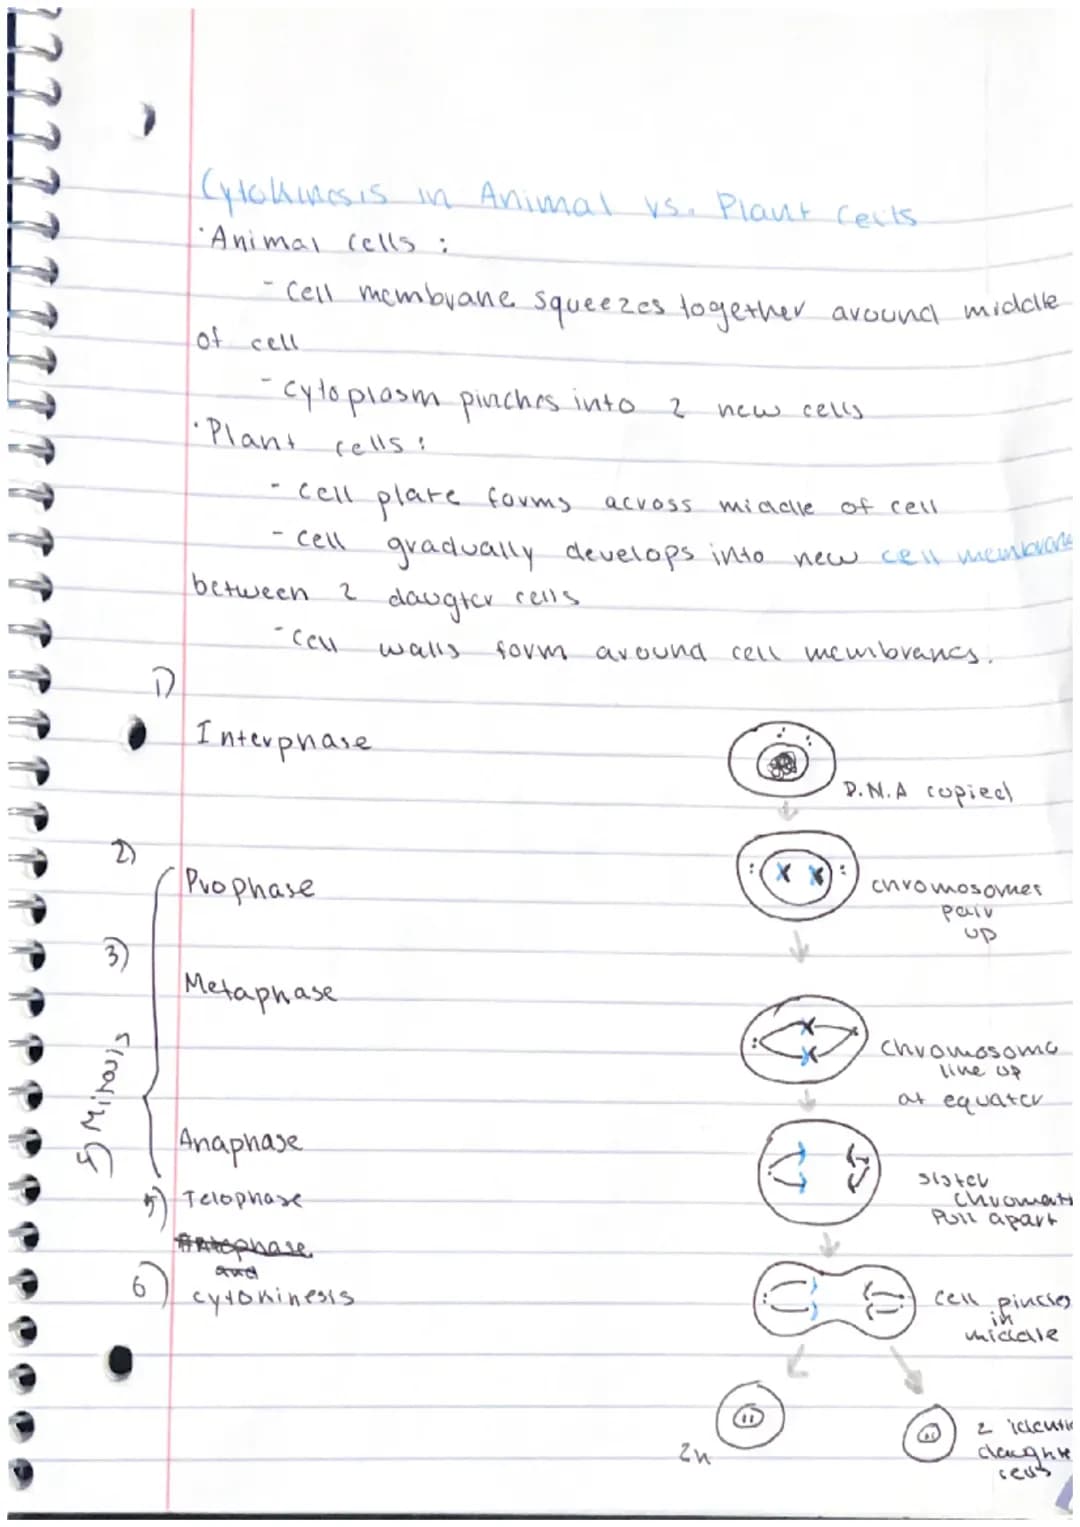 Cytokinesis in Animal vs. Plant Cells
· Animal cells :
- Cell membrane squeezes together around middle
of cell
- cytoplasm pinches into 2 new cells
· Plant cells :
- cell plate forms across middle of cell
- cell gradually develops into new cell membrane
between 2 daugter cells
- cell walls form around cell membranes.
1)
Interphase
D.N.A copied
2)
Prophase
chromosomes
pair
up
3)
Metaphase
Chromosome
line up
at equater
4) Mitosis
Anaphase
sister
chromat
Pull apart
5) Telophase
and
6) cytokinesis
cell pinches
in
middle
2n
2 identic
daughte
cells